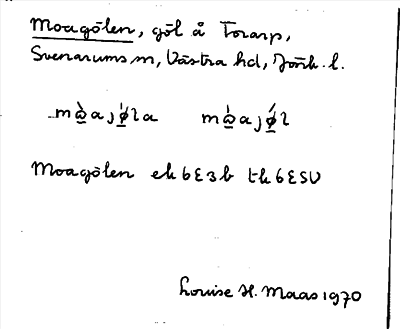 Moagölen, göl å Torarp,
Svenarums sn, Västra hd, Jönk. l.
Moagölen ek 6E3b tk 6ESV
Louise H. Maas 1970